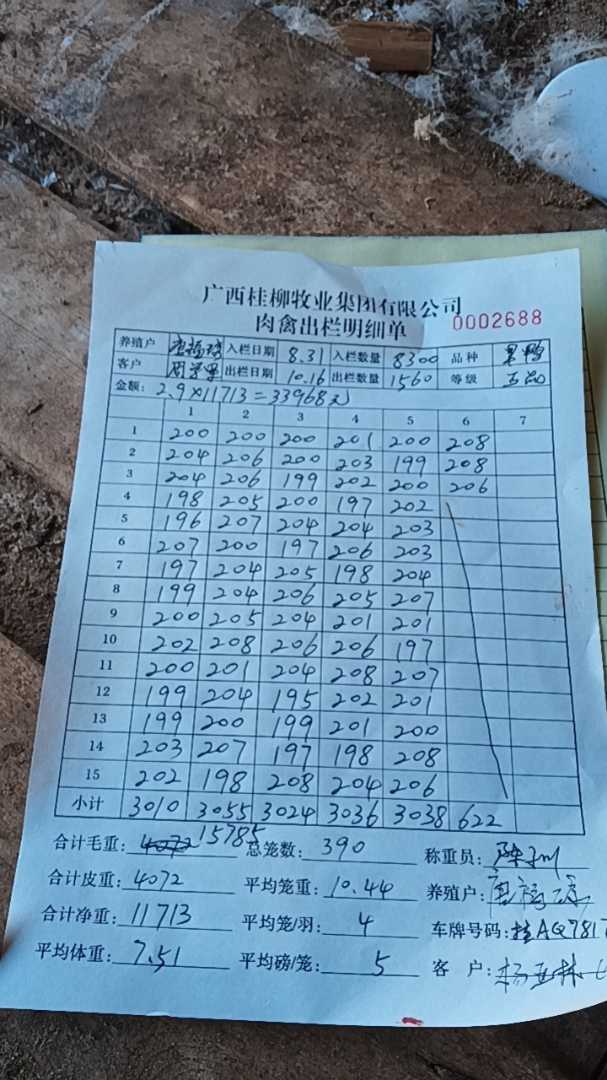 广西桂柳牧业集团有限公司
肉禽出栏明细单 0002688
养殖户 入栏日期 8.31 入栏数量 8300 品种
客户 出栏日期 10.16 出栏数量 1560 等级
金额: 2.9×11713=33968元
1 2 3 4 5 6 7
1 200 200 200 201 200 208
2 204 206 200 203 199 208
3 204 206 199 202 200 206
4 198 205 200 197 202
5 196 207 204 204 203
6 207 200 197 206 203
7 197 204 205 198 204
8 199 204 206 205 207
9 200 205 204 201 201
10 202 208 206 206 197
11 200 201 204 208 207
12 199 204 195 202 201
13 199 200 199 201 200
14 203 207 197 198 208
15 202 198 208 204 206
小计 3010 3055 3024 3036 3038 622
合计毛重: 4072 15785 总笼数: 390 称重员:
合计皮重: 4072 平均笼重: 10.44 养殖户:
合计净重: 11713 平均笼/羽: 4 车牌号码: 桂AQ781
平均体重: 7.51 平均磅/笼: 5 客 户: